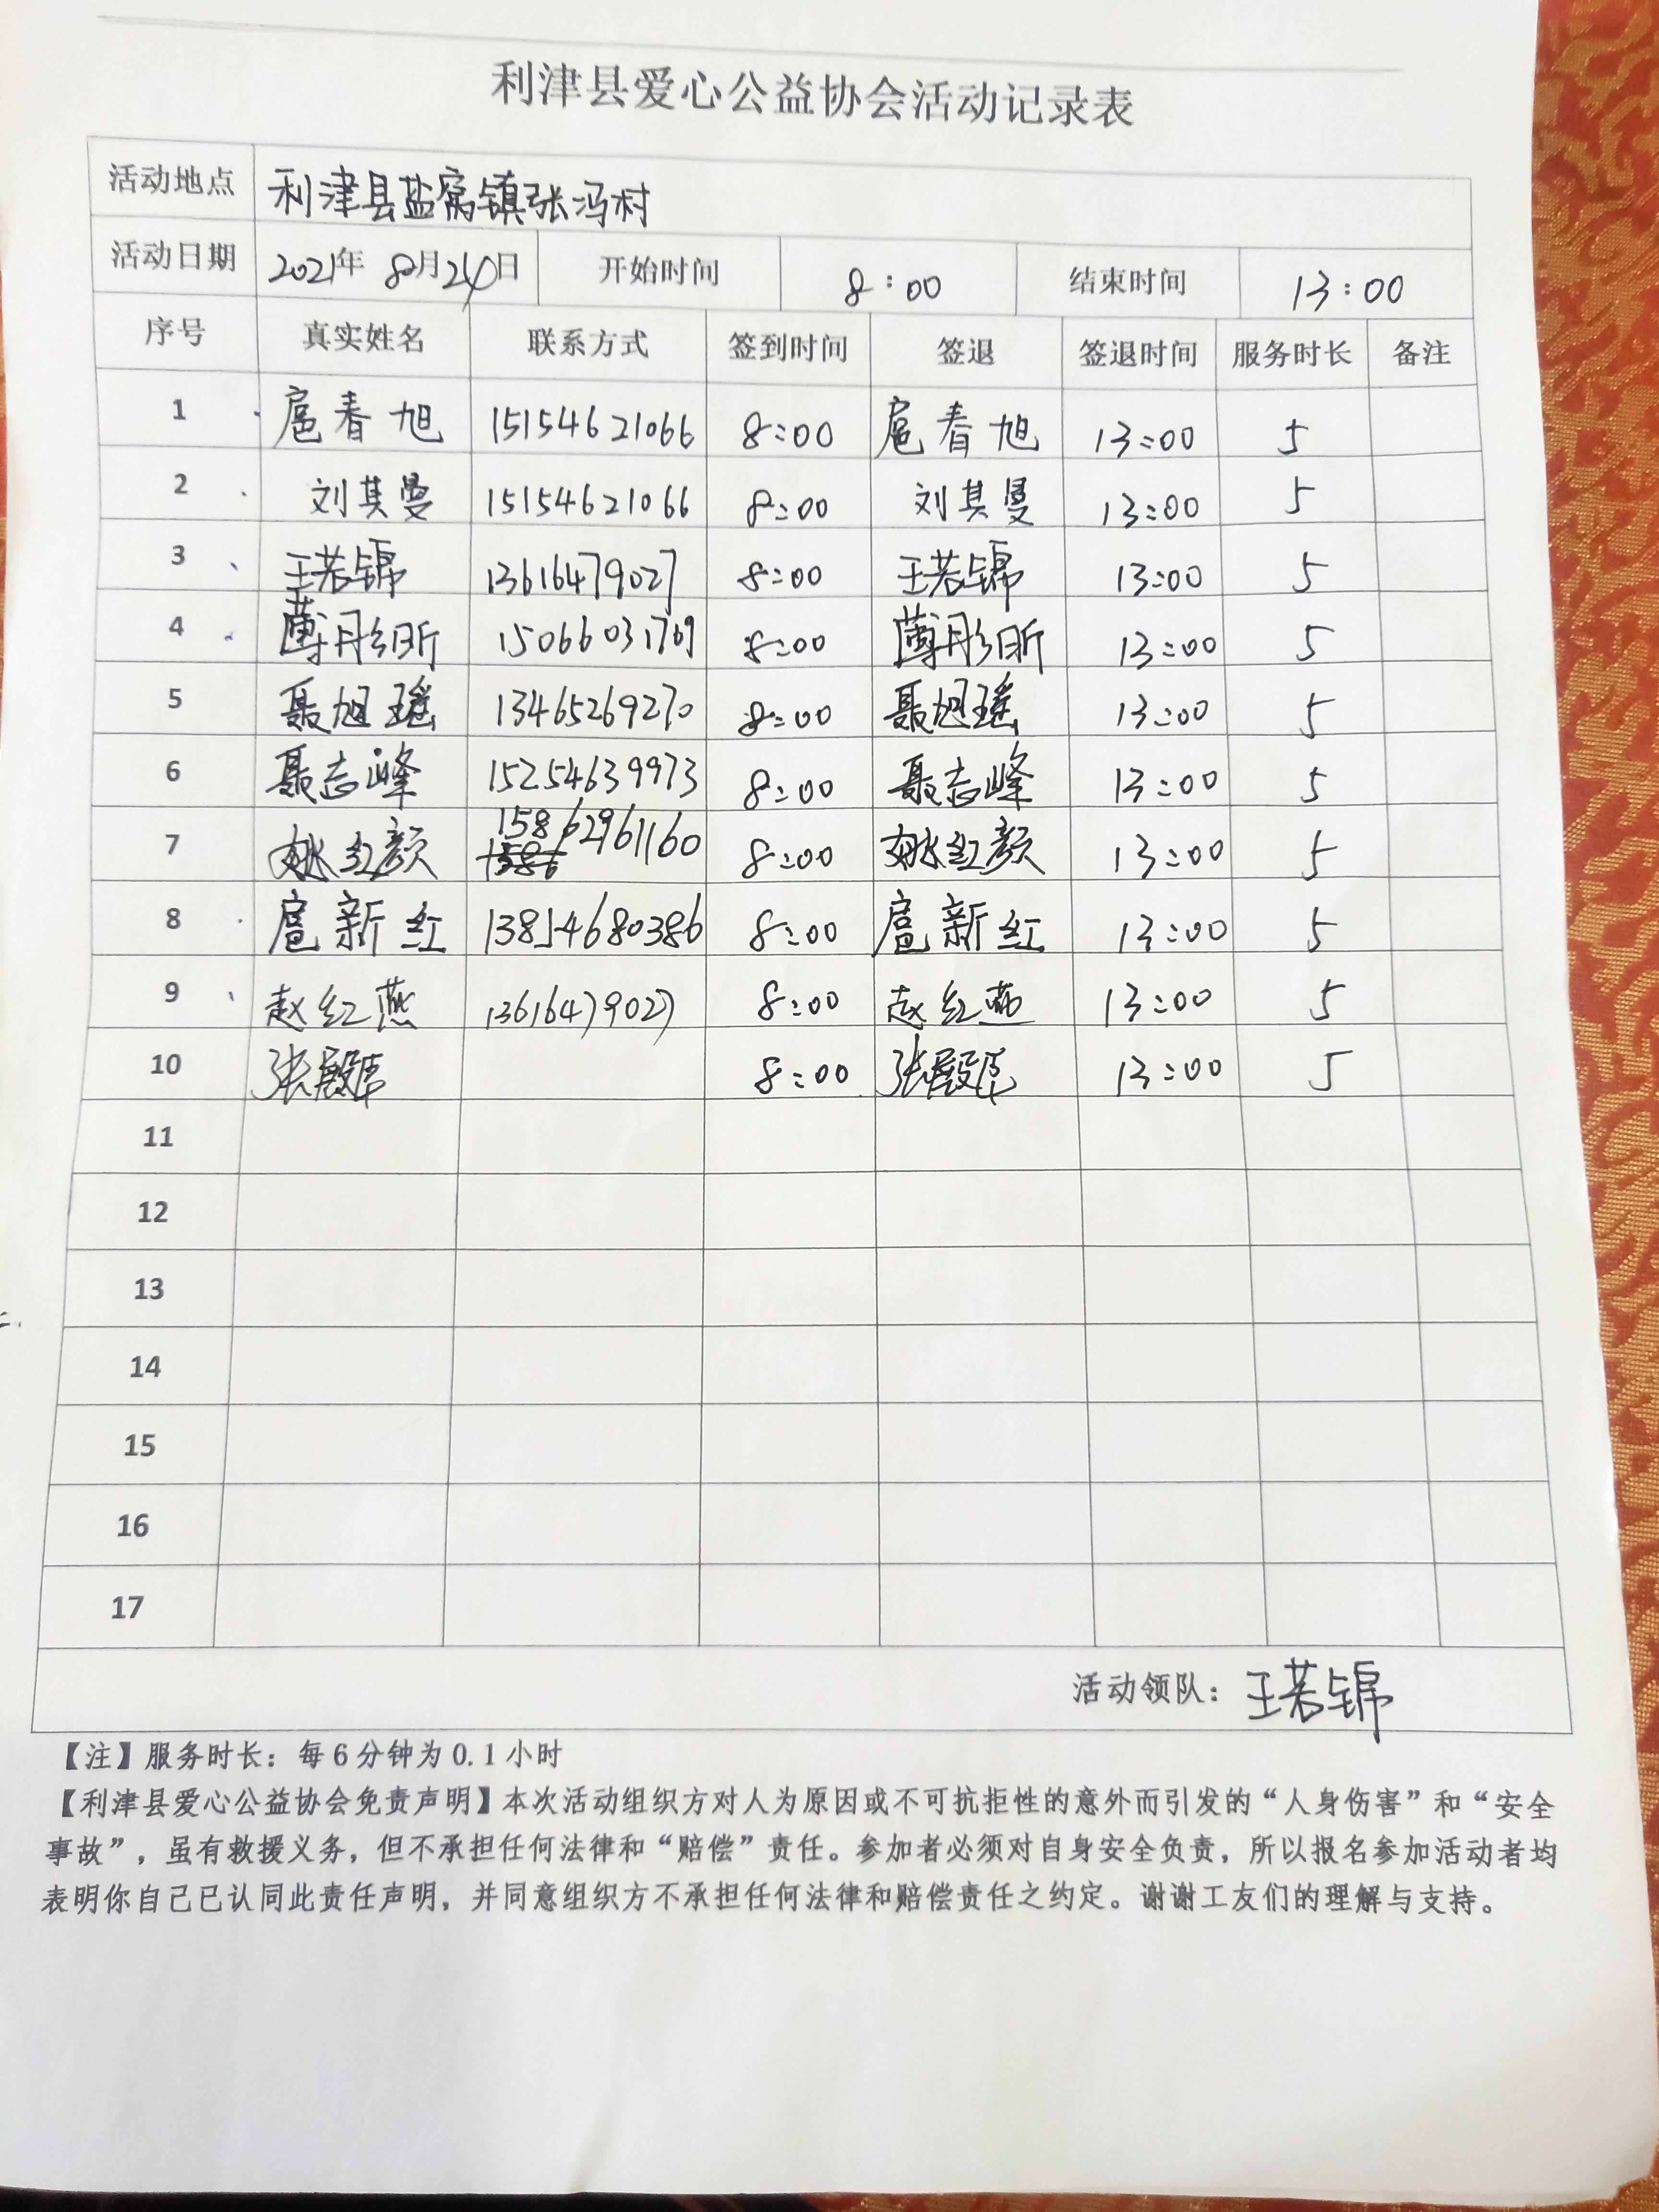 利津县爱心公益协会活动记录表
活动地点 利津县盐窝镇张冯村
活动日期 2021年 8月24日 开始时间 8:00 结束时间 13:00
序号 真实姓名 联系方式 签到时间 签退 签退时间 服务时长 备注
1 扈春旭 15154621066 8:00 扈春旭 13:00 5
2 刘其曼 15154621066 8:00 刘其曼 13:00 5
3 王若锦 13616479027 8:00 王若锦 13:00 5
4 薄彤昕 15066031769 8:00 薄彤昕 13:00 5
5 聂旭瑶 13465269270 8:00 聂旭瑶 13:00 5
6 聂志峰 15254639973 8:00 聂志峰 13:00 5
7 姚红颜 15862961160 8:00 姚红颜 13:00 5
8 扈新红 13854680386 8:00 扈新红 13:00 5
9 赵红燕 13616479027 8:00 赵红燕 13:00 5
10 8:00 13:00 5
11
12
13
14
15
16
17
活动领队: 王若锦
【注】服务时长: 每6分钟为0.1小时
【利津县爱心公益协会免责声明】本次活动组织方对人为原因或不可抗拒性的意外而引发的“人身伤害”和“安全
事故”, 虽有救援义务, 但不承担任何法律和“赔偿”责任。参加者必须对自身安全负责, 所以报名参加活动者均
表明你自己已认同此责任声明, 并同意组织方不承担任何法律和赔偿责任之约定。谢谢工友们的理解与支持。